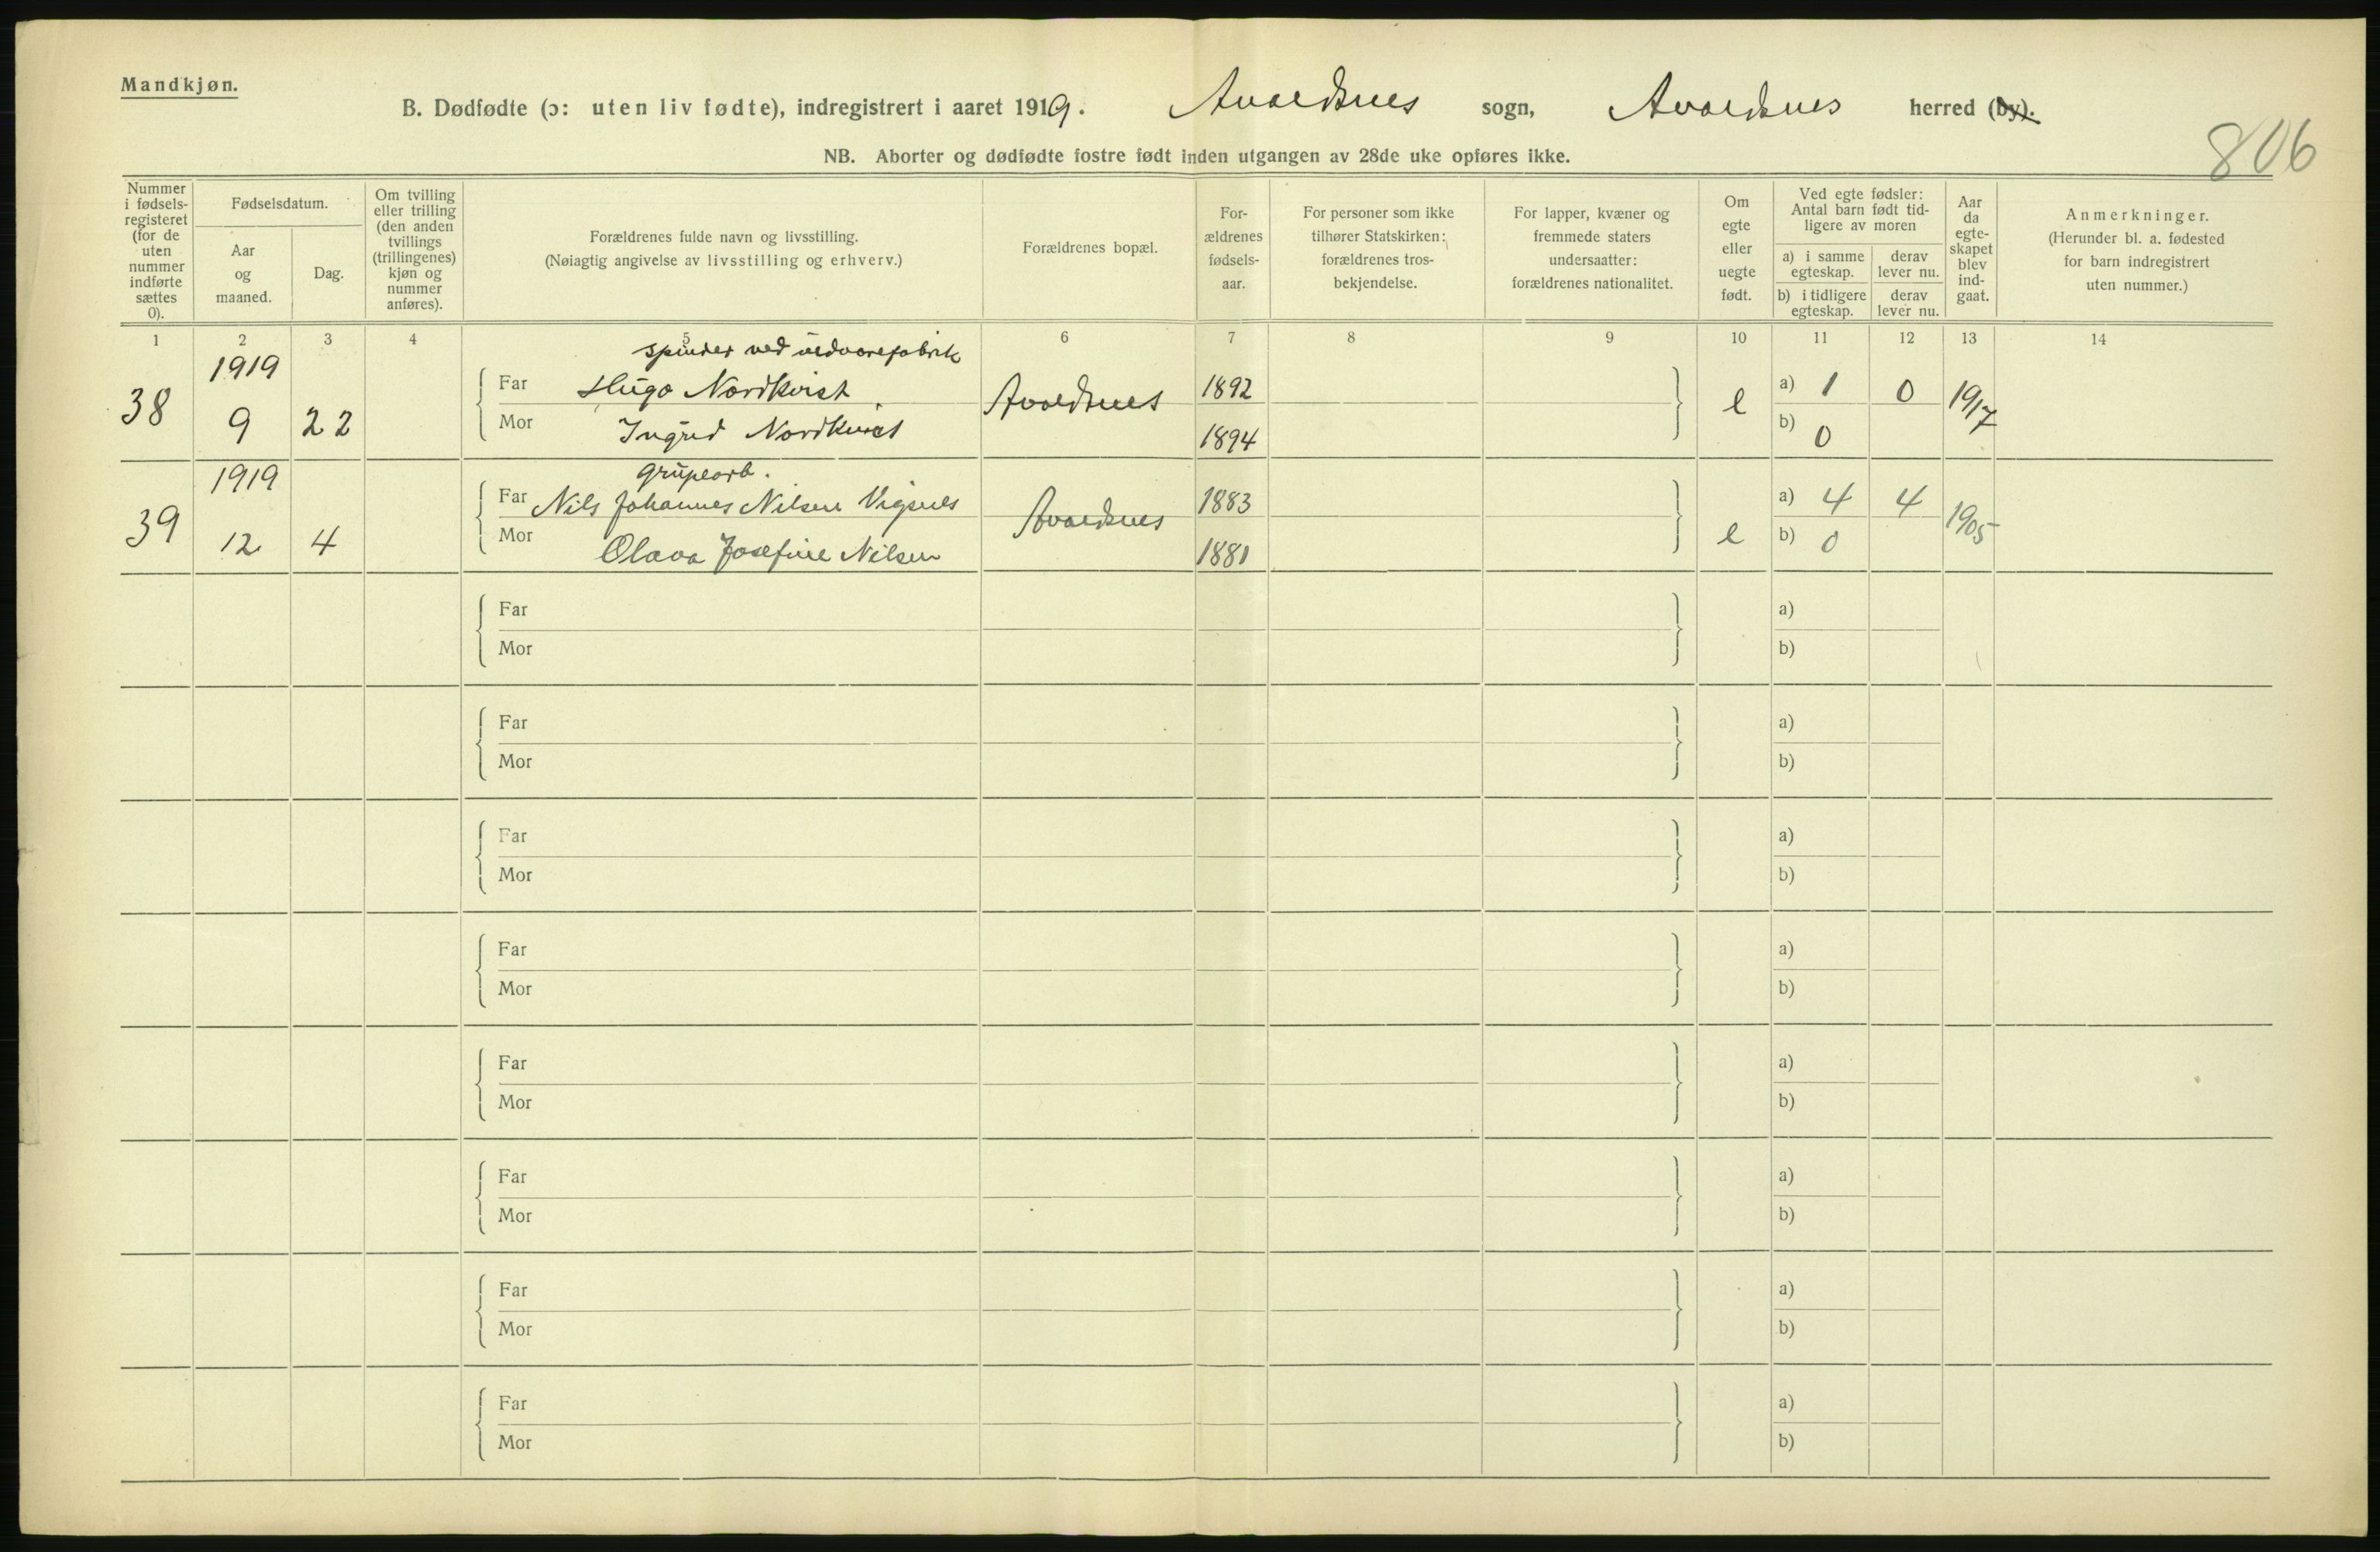 Mandkjøn.
B. Dødfødte (ɔ: uten liv fødte), indregistrert i aaret 1919. Avaldsnes sogn, Avaldsnes herred (by).
806
NB. Aborter og dødfødte fostre født inden utgangen av 28de uke opføres ikke.
Nummer i fødsels-registeret (for de uten nummer indførte sættes 0).
Fødselsdatum.
Aar og maaned.
Dag.
Om tvilling eller trilling (den anden tvillings (trillingenes) kjøn og nummer anføres).
Forældrenes fulde navn og livsstilling.
(Nøiagtig angivelse av livsstilling og erhverv.)
Forældrenes bopæl.
For-ældrenes fødsels-aar.
For personer som ikke tilhører Statskirken: forældrenes tros-bekjendelse.
For lapper, kvæner og fremmede staters undersaatter: forældrenes nationalitet.
Om egte eller uegte født.
Ved egte fødsler: Antal barn født tid-ligere av moren
a) i samme egteskap.
derav lever nu.
b) i tidligere egteskap.
derav lever nu.
Aar da egte-skapet blev ind-gaat.
Anmerkninger.
(Herunder bl. a. fødested for barn indregistrert uten nummer.)
1 2 3 4 5 6 7 8 9 10 11 12 13 14
spinder ved uldvarefabrik
38 1919 9 22 Far Hugo Nordkvist Avaldsnes 1892 e a) 1 0 1917
Mor Ingrid Nordkvist 1894 b) 0
grubearb.
39 1919 12 4 Far Nils Johannes Nilsen Vignes Avaldsnes 1883 e a) 4 4 1905
Mor Olava Josefine Nilsen 1881 b) 0
Far a)
Mor b)
Far a)
Mor b)
Far a)
Mor b)
Far a)
Mor b)
Far a)
Mor b)
Far a)
Mor b)
Far a)
Mor b)
Far a)
Mor b)